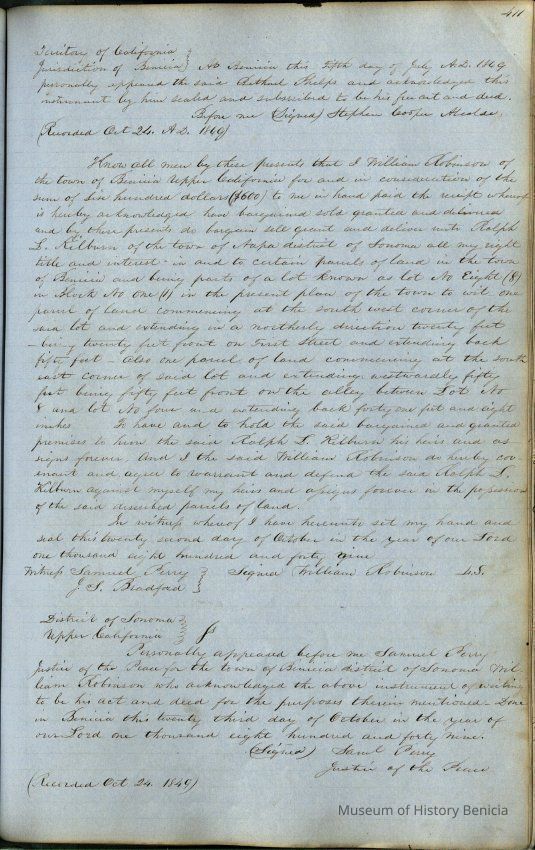 411
Territory of California }
Jurisdiction of Benicia } At Benicia this 24th day of July A.D. 1849
personally appeared the said Bethuel Phelps and acknowledged this
instrument by him sealed and subscribed to be his free act and deed.
Before me (Signed) Stephen Cooper Alcalde,
(Recorded Oct 24. A.D. 1849)
Know all men by these presents that I William Robinson of
the town of Benicia Upper California for and in consideration of the
sum of Six hundred dollars ($600) to me in hand paid the receipt whereof
is hereby acknowledged have bargained sold granted and delivered
and by these presents do bargain sell grant and deliver unto Ralph
L. Kilburn of the town of Napa district of Sonoma all my right
title and interest in and to certain parcels of land in the town
of Benicia and being parts of a lot known as lot No Eight (8)
in Block No One (1) in the present plan of the town to wit one
parcel of land commencing at the south west corner of the
said lot and extending in a northerly direction twenty feet
- being twenty feet front on First Street and extending back
fifty feet - Also one parcel of land commencing at the south
east corner of said lot and extending westwardly fifty
feet being fifty feet front on the alley between Lot No
8 and lot No four and extending back forty one feet and eight
inches. To have and to hold the said bargained and granted
premises to him the said Ralph L. Kilburn his heirs and as
signs forever. And I the said William Robinson do hereby cov
enant and agree to warrant and defend the said Ralph L.
Kilburn against myself my heirs and assigns forever in the possession
of the said described parcels of land.
In witness whereof I have hereunto set my hand and
seal this twenty second day of October in the year of our Lord
one thousand eight hundred and forty nine
Witness Samuel Perry } Signed William Robinson L.S.
J. S. Bradford }
District of Sonoma }
Upper California }
Personally appeared before me Samuel Perry
Justice of the Peace for the town of Benicia district of Sonoma Wil
liam Robinson who acknowledged the above instrument of writing
to be his act and deed for the purposes therein mentioned - Done
in Benicia this twenty third day of October in the year of
our Lord one thousand eight hundred and forty nine.
(Signed) Saml Perry
Justice of the Peace
(Recorded Oct 24. 1849)
Museum of History Benicia